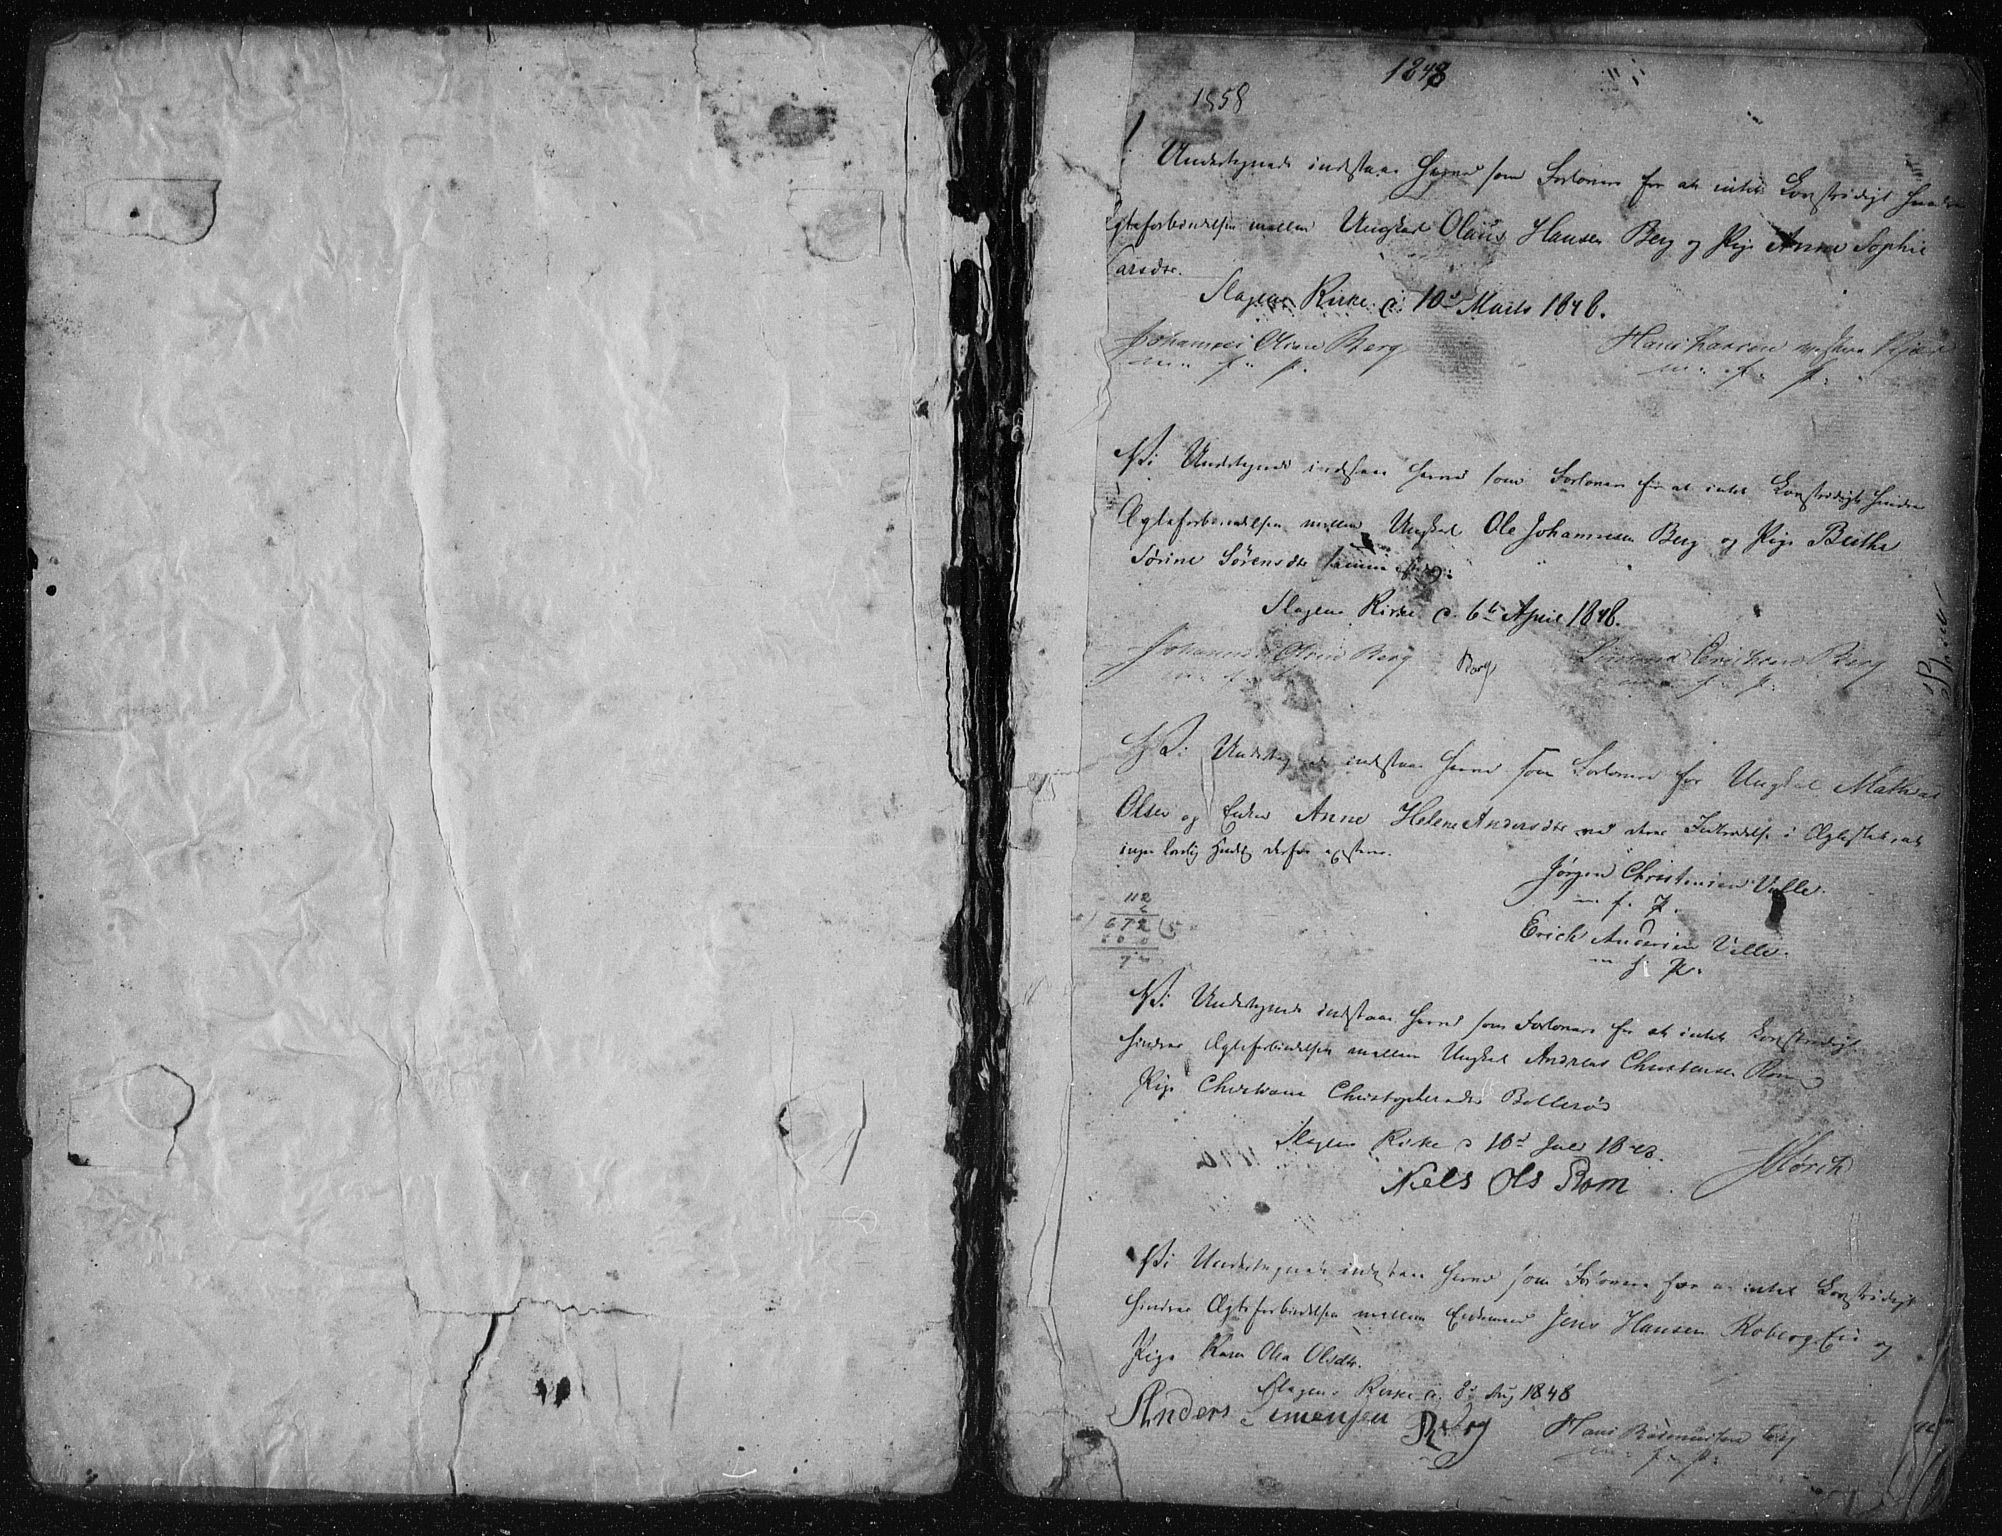 1848
1858
Vi Undertegnede indestaae herved som Forlovere for at intet Lovstridigt hindrer
Ægteforbindelsen mellem Ungkarl Olaus Hansen Berg og Pige Anne Sophie
Larsdtr.
Slagens Kirke d. 10d Marts 1848.
Johannes Olsen Berg Hans Larsen
m. f. p. m. f. p.
Vi Undertegnede indestaae herved som Forlovere for at intet Lovstridigt hindrer
Ægteforbindelsen mellem Ungkarl Ole Johannesen Berg og Pige Berthe
Sørine Sørensdtr
Slagens Kirke d. 6te April 1848.
Johannes Olsen Berg Berg Simund Erichsen Berg
m. f. p. m. f. p.
Vi Undertegnede indestaae herved som Forlovere for Ungkarl Mathias
Olsen og Enken Anne Helene Andersdtr ved deres Indtrædelse i Ægtestand, at
ingen lovlig Hindring derfor existerer.
Jørgen Christensen Valle.
m. f. P.
Erich Andersen Valle.
m. f. P.
112
6
672
600
72
Vi Undertegnede indestaae herved som Forlovere for at intet Lovstridigt
hindrer Ægteforbindelsen mellem Ungkarl Andreas Christensen Rom og
Pige Christiane Christophersdtr Bollerøs
Slagens Kirke d 10d Juli 1848.
Niels Ols Rom
Vi Undertegnede indestaae herved som Forlovere for at intet Lovstridigt
hindrer Ægteforbindelsen mellem Enkemand Jens Hansen Roberg Eie og
Pige Karen Olea Olsdtr.
Slagens Kirke d. 8d Aug 1848
Anders Simensen Berg Hans Rasmussen
m. f. p.